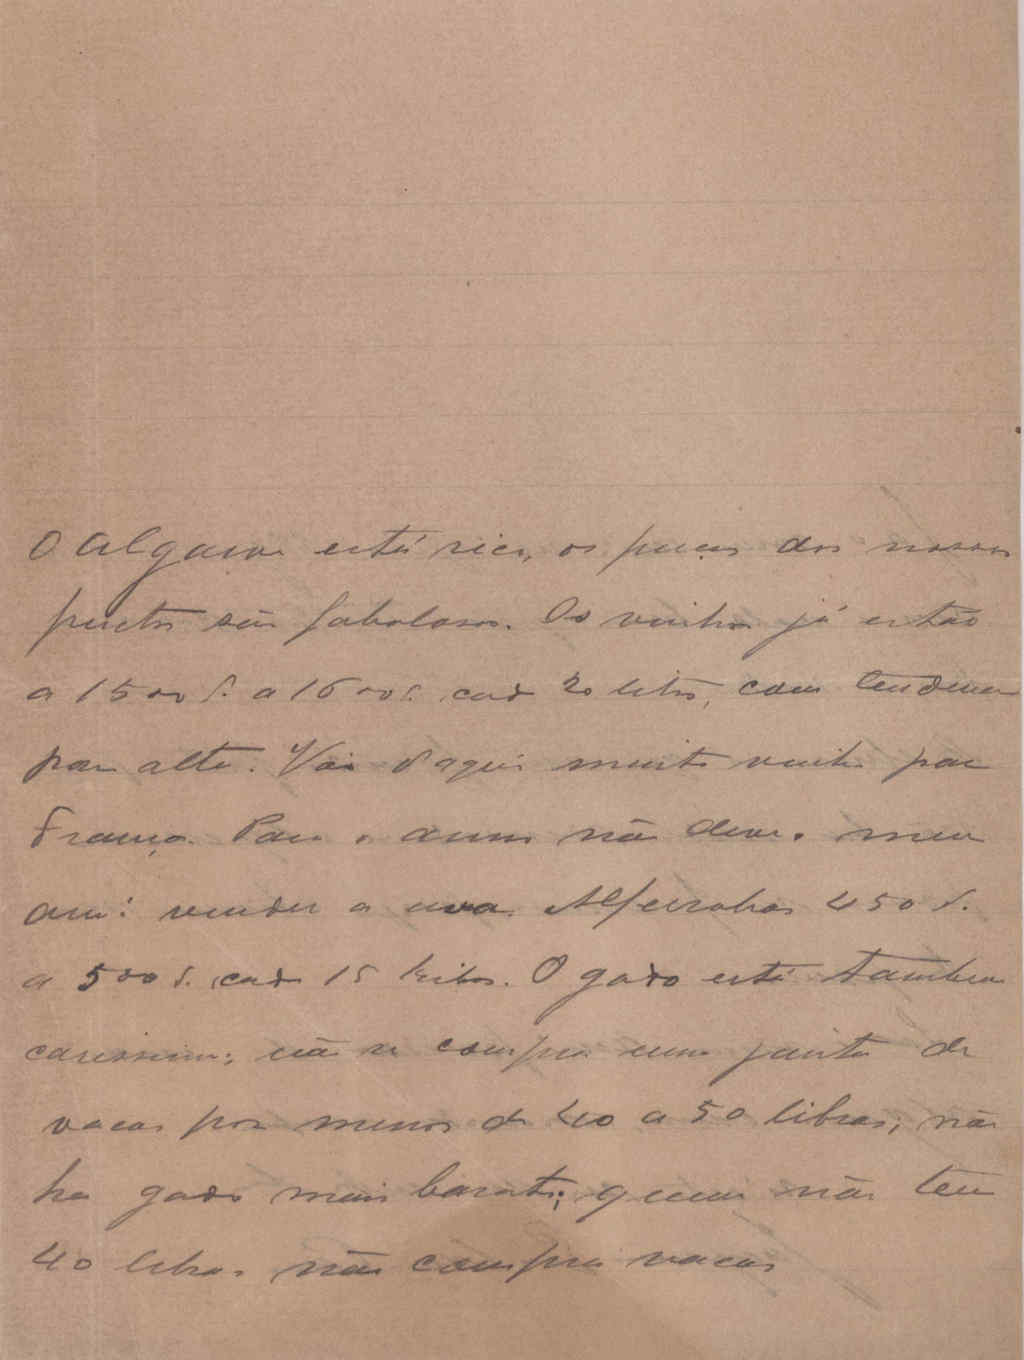 O Algarve está rico, os preços dos nossos
fructos são fabolosos. Os vinhos já estão
a 1500 r. a 1600 r. cada 20 litros, com tendencia
para alta. Vai d'aqui muito vinho para
França. Para o anno não deve o meu
am.: vender a uva. Alfarrobas 450 r.
a 500 r. cada 15 kilos. O gado está tambem
carissimo; não se compra uma junta de
vacas por menos de 40 a 50 libras; não
ha gado mais barato; quem não tem
40 libras não compra vacas